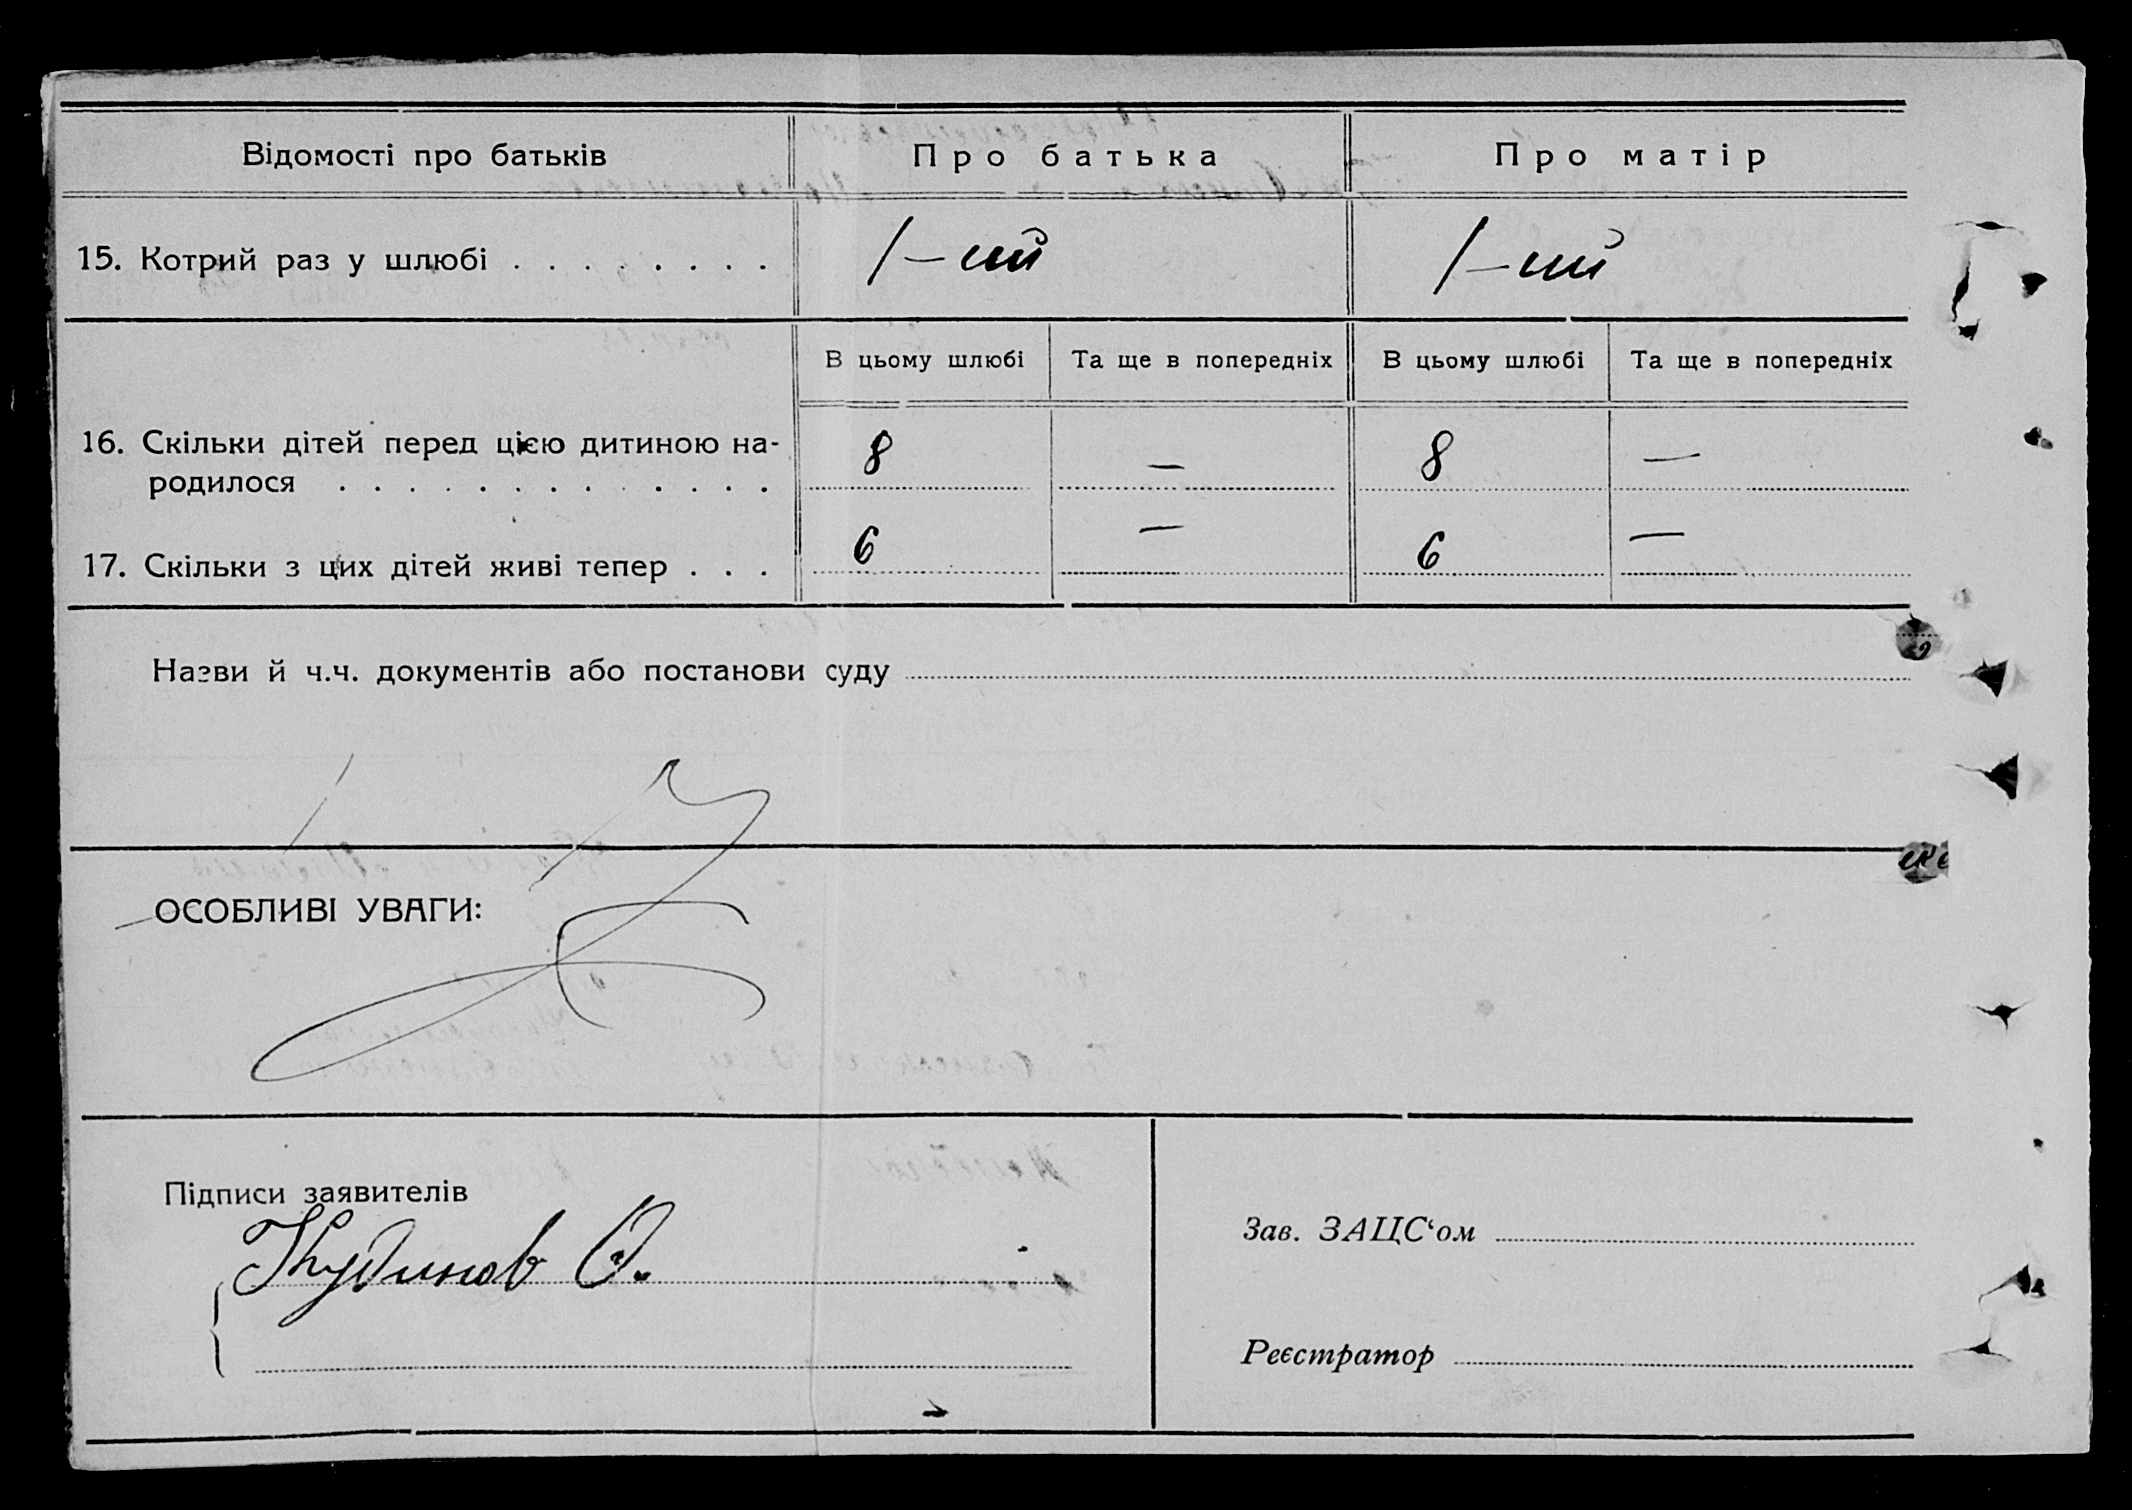 Відомості про батьків
Про батька
Про матір
15. Котрий раз у шлюбі . . . . . . . .
1–ий
1–ий
В цьому шлюбі
Та ще в попередніх
В цьому шлюбі
Та ще в попередніх
16. Скільки дітей перед цією дитиною на-
родилося . . . . . . . . . . . . .
8
—
8
—
17. Скільки з цих дітей живі тепер . . .
6
—
6
—
Назви й ч.ч. документів або постанови суду
ОСОБЛИВІ УВАГИ:
Підписи заявителів
Кудинов О.
Зав. ЗАЦС‘ом
Реєстратор